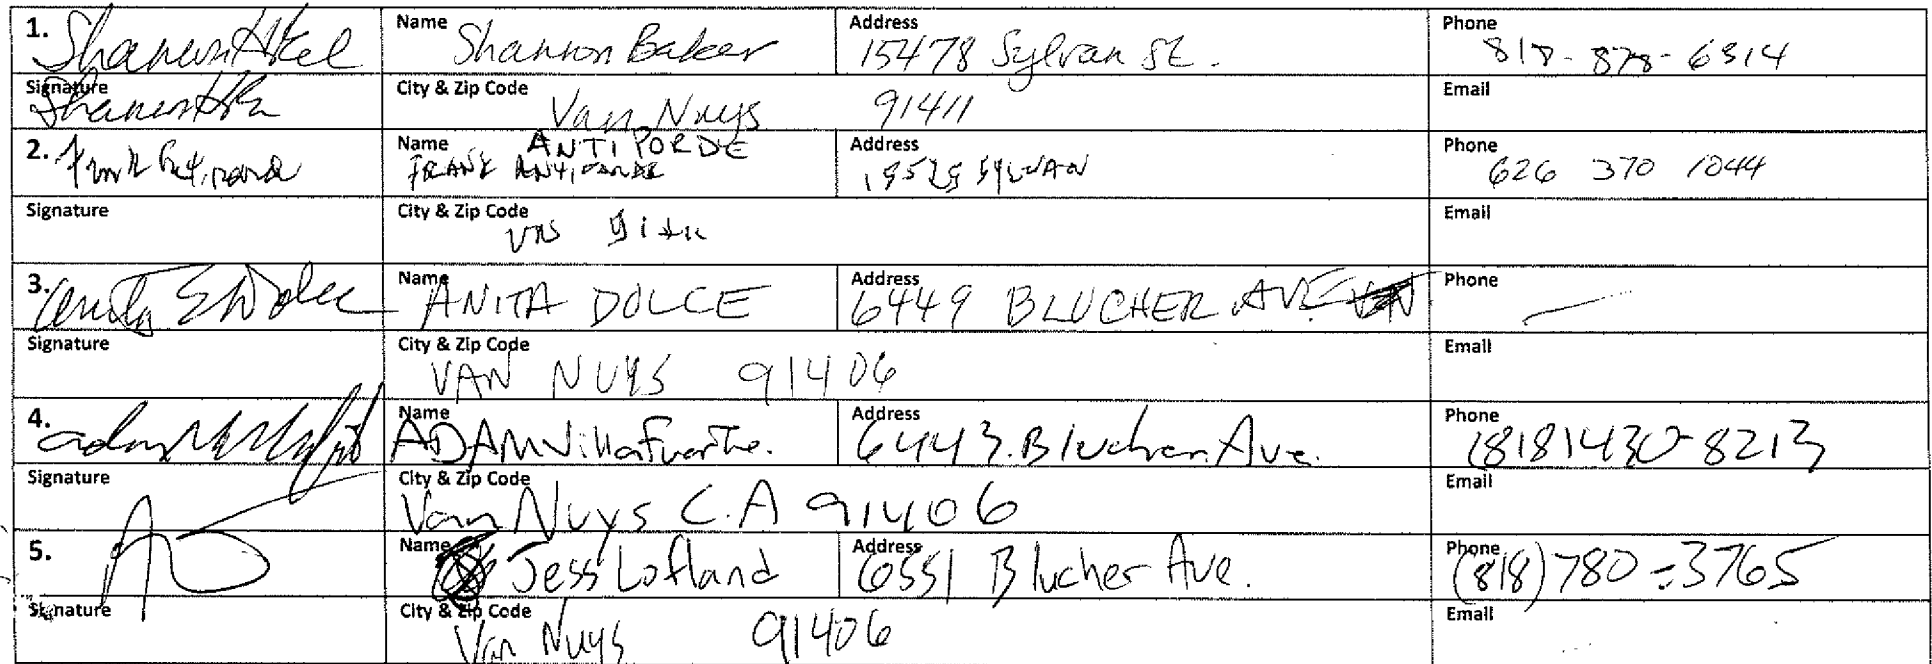 1. Name Shannon Baker Address 15478 Sylvan St. Phone 818-878-6314
Signature City & Zip Code Van Nuys 91411 Email
2. Name ANTIPORDE Address Phone
FRANK SYLVAN 626 370 1044
Signature City & Zip Code Email
3. Name ANITA DOLCE Address 6449 BLUCHER AVE Phone
Signature City & Zip Code VAN NUYS 91406 Email
4. Name ADAM Villafuerthe. Address 6443. Blucher Ave. Phone (818)430-8213
Signature City & Zip Code Van Nuys C.A 91406 Email
5. Name Jess Lofland Address 6551 Blucher Ave. Phone (818)780-3765
Signature City & Zip Code Van Nuys 91406 Email